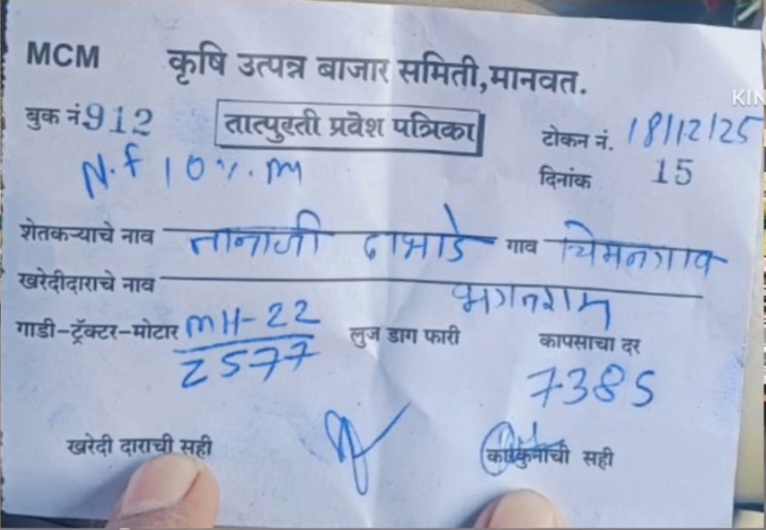 MCM कृषि उत्पन्न बाजार समिती,मानवत.
बुक नं 912 तात्पुरती प्रवेश पत्रिका टोकन नं. 18/12/25
N.f 10%.m दिनांक 15
शेतकऱ्याचे नाव तानाजी दाभाडे गाव चिमनगाव
खरेदीदाराचे नाव भगतराम
गाडी-ट्रॅक्टर-मोटार MH-22 लुज डाग फारी कापसाचा दर
2577 7385
खरेदी दाराची सही कारकुनाची सही
KIN